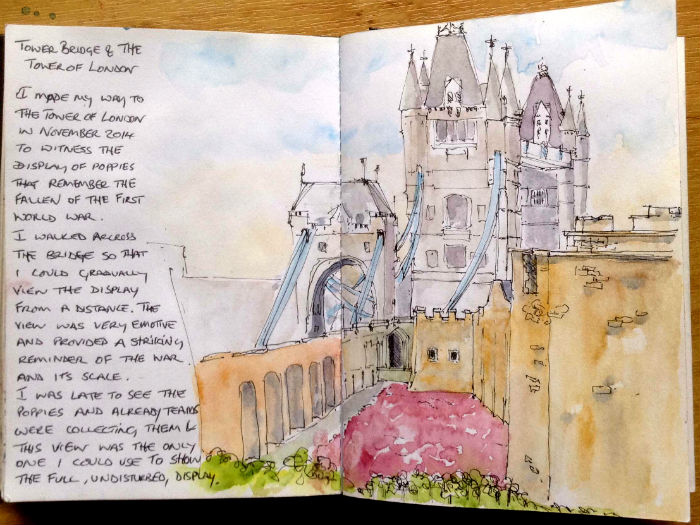 TOWER BRIDGE & THE
TOWER OF LONDON
I MADE MY WAY TO
THE TOWER OF LONDON
IN NOVEMBER 2014
TO WITNESS THE
DISPLAY OF POPPIES
THAT REMEMBER THE
FALLEN OF THE FIRST
WORLD WAR.
I WALKED ARCROSS
THE BRIDGE SO THAT
I COULD GRADUALLY
VIEW THE DISPLAY
FROM A DISTANCE. THE
VIEW WAS VERY EMOTIVE
AND PROVIDED A STRIKING
REMINDER OF THE WAR
AND ITS SCALE.
I WAS LATE TO SEE THE
POPPIES AND ALREADY TEAMS
WERE COLLECTING THEM &
THIS VIEW WAS THE ONLY
ONE I COULD USE TO SHOW
THE FULL, UNDISTURBED, DISPLAY.